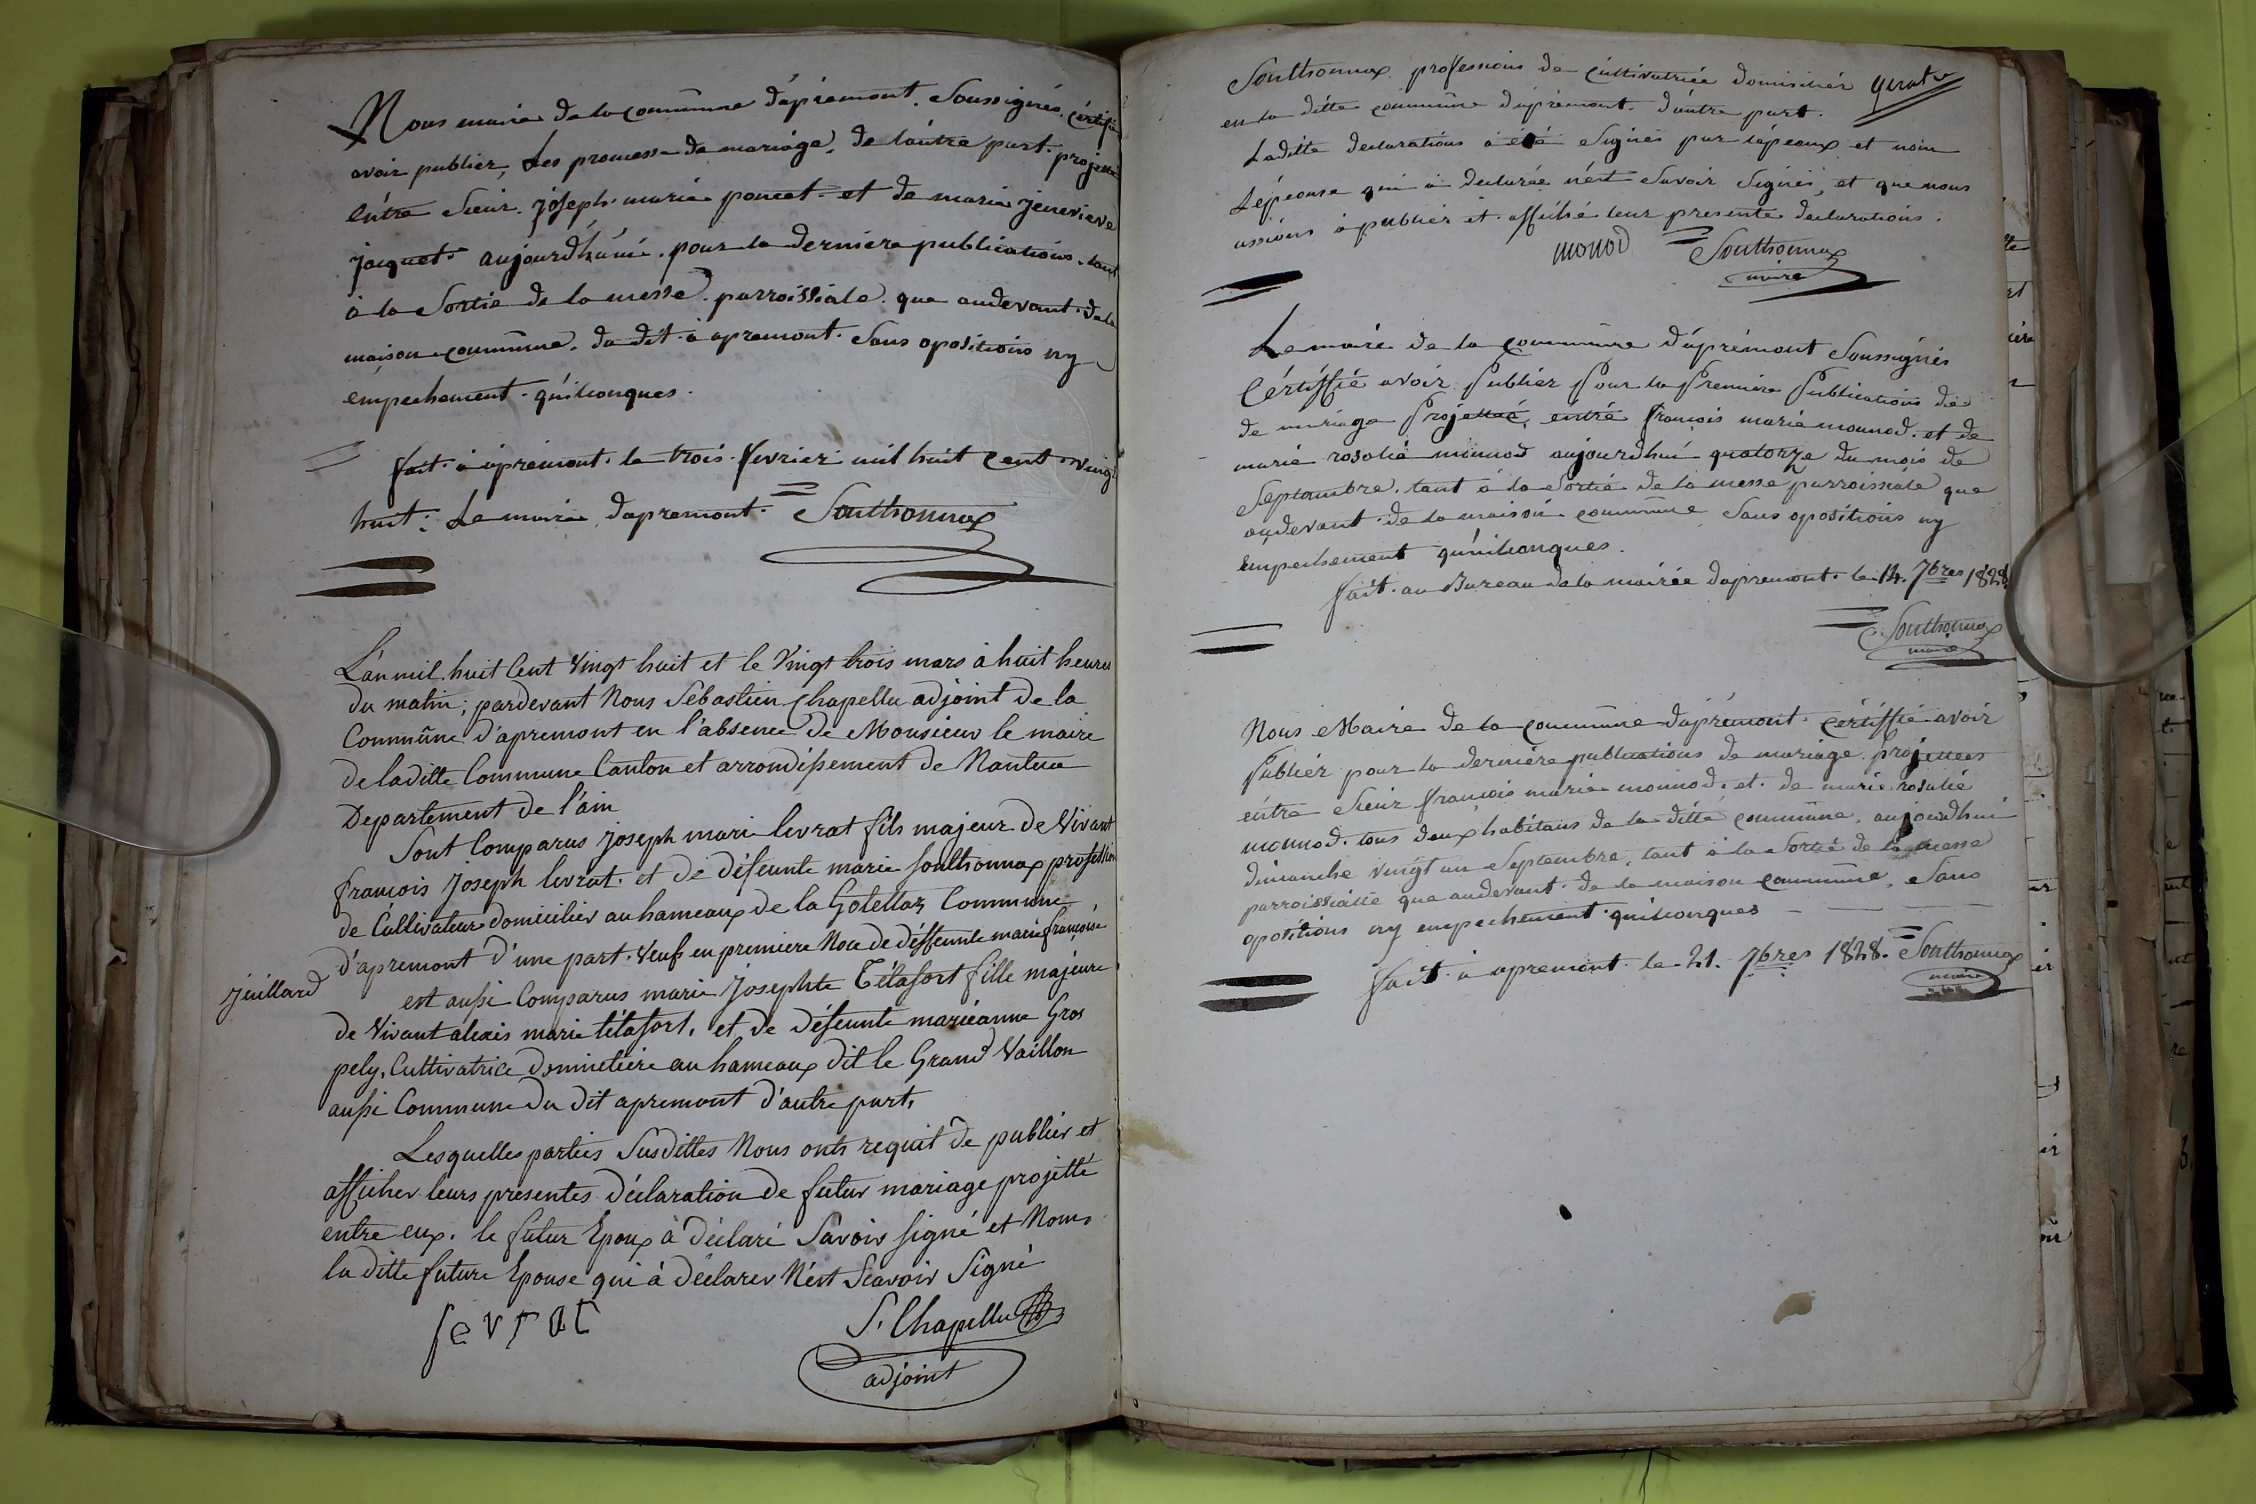 Nous maire de la commune d'apremont. Soussignés. certifie
avoir publier, Les promesse de mariage, de l'autre part. projette
entre Sieur. joseph. marie poncet. et de marie jenevieve
jacquet. aujourd'huie. pour la derniere publications. tant
à la Sortie de la messe. parroissiale. que audevant. de la
maison commune. du dit. à apremont. Sans opositions ny
empechement. quelconques.
fait. à apremont. le trois. fevrier mil huit cent. vingt
huit. Le maire. d'apremont. Sonthonnax
L'an mil huit Cent Vingt huit et le Vingt trois mars à huit heures
du matin; pardevant Nous Sebastien Chapellu adjoint de la
Commune d'apremont en l'absence de Monsieur le maire
de laditte Commune Canton et arrondissement de Nantua
Departement de l'ain
Sont Comparus joseph marie levrat fils majeur de Vivant
françois joseph levrat. et de défeunte marie Sonthonnax profession
de Cultivateur domicilier au hameaux de la Golettaz Commune
d'apremont d'une part. Veuf en premiere Noce de déffeunte marie françoise
juillard
est aussi Comparus marie josephte Tétafort fille majeure
de Vivant alexis marie tétafort, et de défeunte marieanne Gros
pely, Cultivatrice Domicilière au hameaux dit le Grand Vaillon
aussi Commune du dit apremont d'autre part.
Lesquelles parties Susdittes Nous onts requit de publier et
afficher leurs presentes déclaration de futur mariage projetté
entre eux. le futur Epoux à déclaré Savoir signé et Nom
la ditte future Epouse qui à déclarer N'est Scavoir Signé
levrat S. Chapellu
adjoint
Sonthonnax professions de cultivatrice domicilier
en la ditte commune d'apremont. d'autre part.
Laditte declarations à été Signés par l'épeoux et noin
L'épeouse qui à declarée n'est Savoir Signés, et que nous
assions à publier et affiché leur presente declarations.
monod Sonthonnax
maire
Le maire de la commune d'apremont Soussignés
Certiffie avoir Publier Pour la Premiere Publications de
de mariage Projettée, entre françois marie monnod. et de
marie rosalie monnod aujourdhui quatorze du mois de
Septambre. tant à la Sortie de la messe parroissiale que
audevant. de la maison commune Sans opositions ny
empechement quelconques.
fait. au Bureau de la mairée d'apremont. le 14. 7bres 1828
Sonthonnax
maire
Nous Maire de la commune d'apremont. certiffie avoir
Publier pour la derniere publications de mariage projettées
entre Sieur françois marie monnod. et. de marie rosalie
monnod. tous deux habitans de la ditte commune, aujourdhui
dimanche vingt un Septembre, tant à la Sortie de la messe
parroissialle que audevant. de la maison commune. Sans
opositions ny empechement quelconques
fait. à apremont le 21. 7bres 1828. Sonthonnax
maire